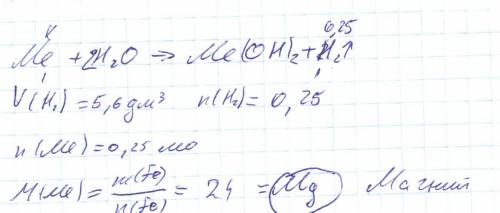 x 0,25
Me + 2H₂O => Me(OH)₂ + H₂↑
1 1
V(H₂) = 5,6 дм³ n(H₂) = 0,25
n(Me) = 0,25 мо
M(Me) = m(Fe)/n(Fe) = 24 = Mg Магний